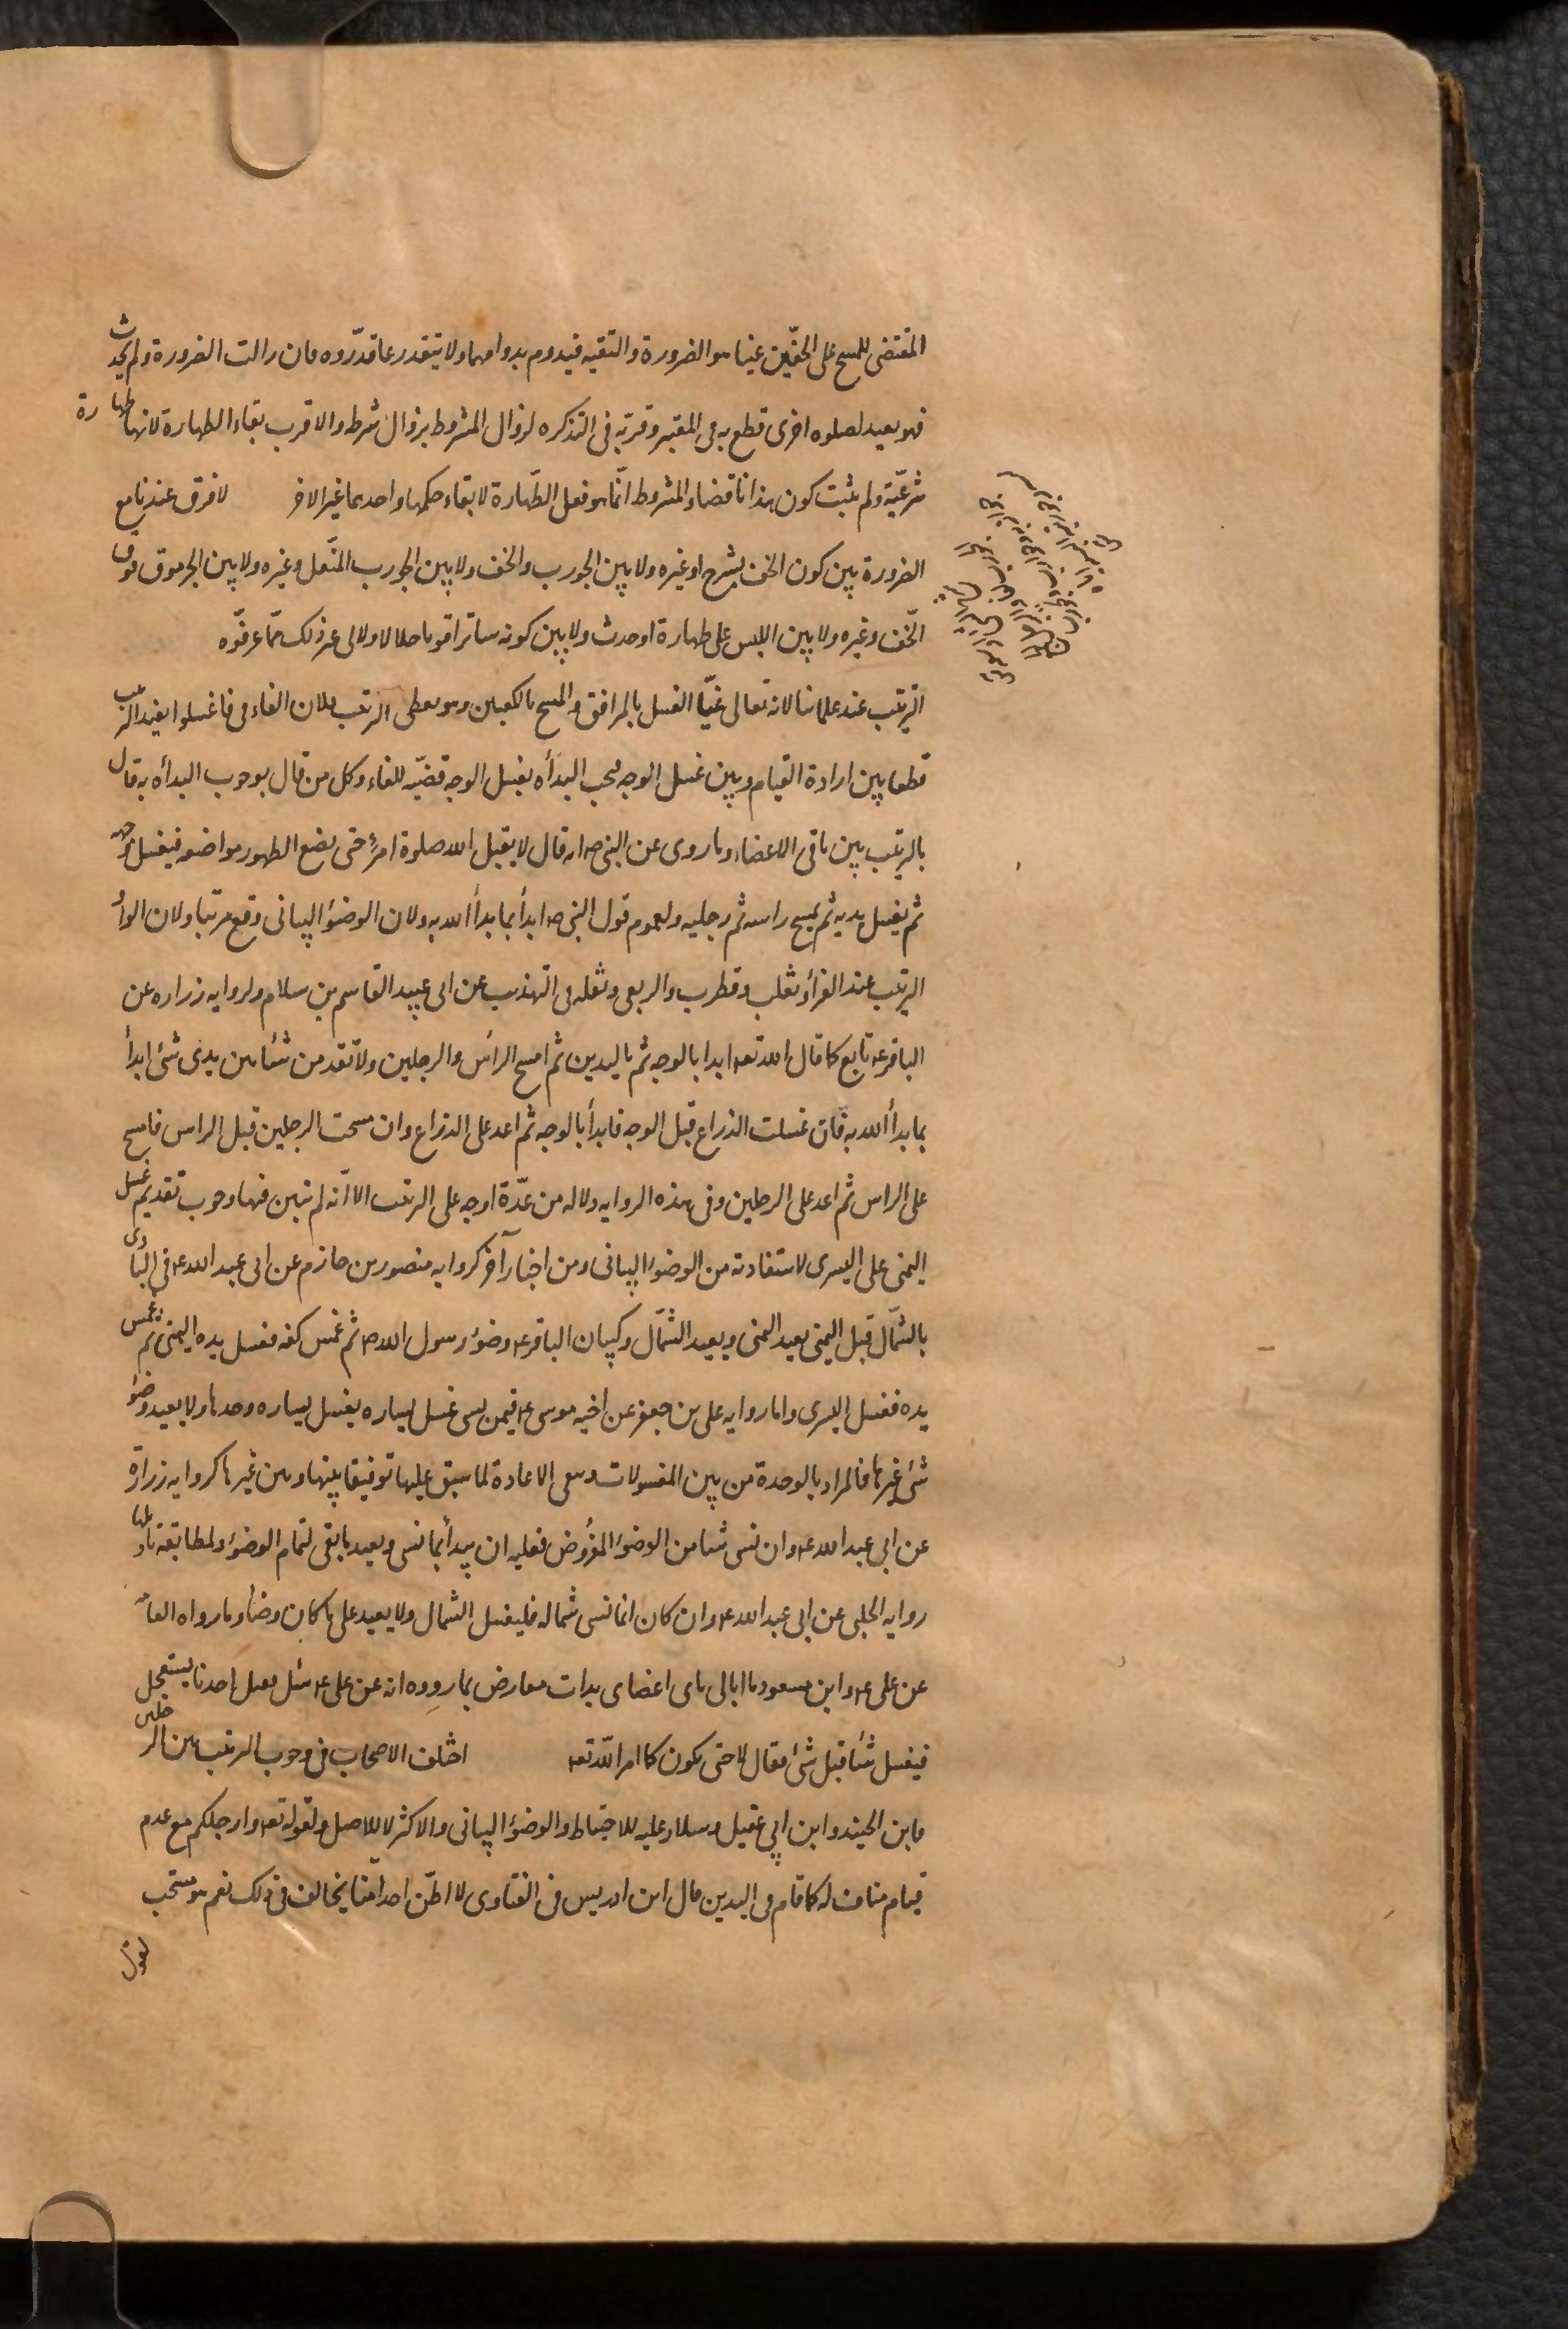 المقتضى للمسح على الخفّين عينا هو الضرورة والتقيه فيدوم بدوامهما ولا يتقدر بما قدّروه فان زالت الضرورة ولم يحدث
فهو يعيد لصلوه اخرى قطع به فى المعتبر وقربّه فى التذكره لزوال المشروط بزوال شرطه والاقرب بقاء الطهارة لانها طهارة
شرعيّة ولم يثبت كون هذا ناقضا والمشروط انّما هو فعل الطّهارة لا بقاء حكمها واحدهما غير الاخر لا فرق عندنا مع
الضرورة بين كون الخف يشرج او غيره ولا بين الجورب والخف ولا بين الجورب المنّعل وغيره ولا بين الجرموق فوق
الخّف وغيره ولا بين اللبس على طهارة او حدث ولا بين كونه ساترا قويا حلالا ولا الى غير ذلك ممّا عرفوّه
الترتيب عند علمائنا لانه تعالى غيّا الغسل بالمرافق والمسح بالكعبين وهو يعطى الترتيب ولان الفاء فى فاغسلوا يفيد الترتيب
قطعا بين ارادة القيام وبين غسل الوجه فيجب البدأه بغسل الوجه قضيّه للفاء وكل من قال بوجوب البدأه به قال
بالترتيب بين باقى الاعضاء وما روى عن النبى ص انه قال لا يقبل الله صلوة امرئ حتى يضع الطهور مواضعه فيغسل وجهه
ثم يغسل يديه ثم يمسح راسه ثم رجليه ولعموم قول النبى ص ابدأ بما بدأ الله به ولان الوضوء البيانى وقع مرتبا ولان الواو
الترتيب عند الفراء وثعلب وقطرب والربعى ونقله فى التهذيب عن ابى عبيد القاسم بن سلام ولروايه زراره عن
الباقر ع تابع كما قال الله تع ابدا بالوجه ثم باليدين ثم امسح الراس والرجلين ولا تقدمن شيئا بين يدى شئ ابدأ
بما بدأ الله به فان غسلت الذراع قبل الوجه فابدأ بالوجه ثم اعد على الذراع وان مسحت الرجلين قبل الراس فامسح
على الراس ثم اعد على الرجلين وفى هذه الروايه دلاله من عدّة اوجه على الترتيب الا انّه لم يبين فيها وجوب تقديم غسل
اليمنى على اليسرى لاستفادته من الوضوء البيانى ومن اخبار آخر كروايه منصور بن حازم عن ابى عبد الله ع فى البادى
بالشّمال قبل اليمنى يعيد اليمنى ويعيد الشّمال وكبيان الباقر ع وضوء رسول الله ص ثم غمس كفه فغسل يده اليمنى ثم غمس
يده فغسل اليسرى واما روايه على بن جعفر عن اخيه موسى ع فيمن نسى غسل يساره يغسل يساره وحدها ولا يعيد وضوء
شئ غيرها فالمراد بالوحدة من بين المغسولات ونفى الاعادة لما سبق عليها توفيقا بينها وبين غيرها كروايه زرارة
عن ابى عبد الله ع وان نسى شيئا من الوضوء المفروض فعليه ان يبدأ بما نسى ويعيد ما بقى لتمام الوضوء ولمطابقة تاويلها
روايه الحلبى عن ابى عبد الله ع وان كان انما نسى شماله فليغسل الشمال ولا يعيد على ما كان وضأ وما رواه العامه
عن على ع وابن مسعود ما ابالى باى اعضاى بدات معارض بما رووه انه عن على ع سئل احدنا يستعجل
فيغسل شيئا قبل شئ فقال لا حتى يكون كما امر اللّه تع اختلف الاصحاب فى وجوب الترتيب بين الرجلين
فابن الجنيد وابن ابى عقيل وسلار عليه للاحتياط والوضوء البيانى والاكثر لا للاصل ولقوله تع وارجلكم مع عدم
قيام مناف له كما قام فى اليدين قال ابن ادريس فى الفتاوى لا اظنّ احدا منّا يخالف فى ذلك نعم هو مستحب
لقول